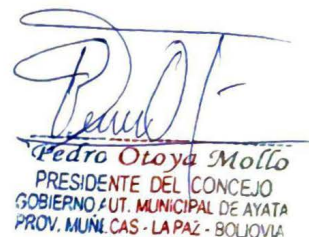 Pedro Otoya Mollo
PRESIDENTE DEL CONCEJO
GOBIERNO AUT. MUNICIPAL DE AYATA
PROV. MUÑECAS - LA PAZ - BOLIOVIA